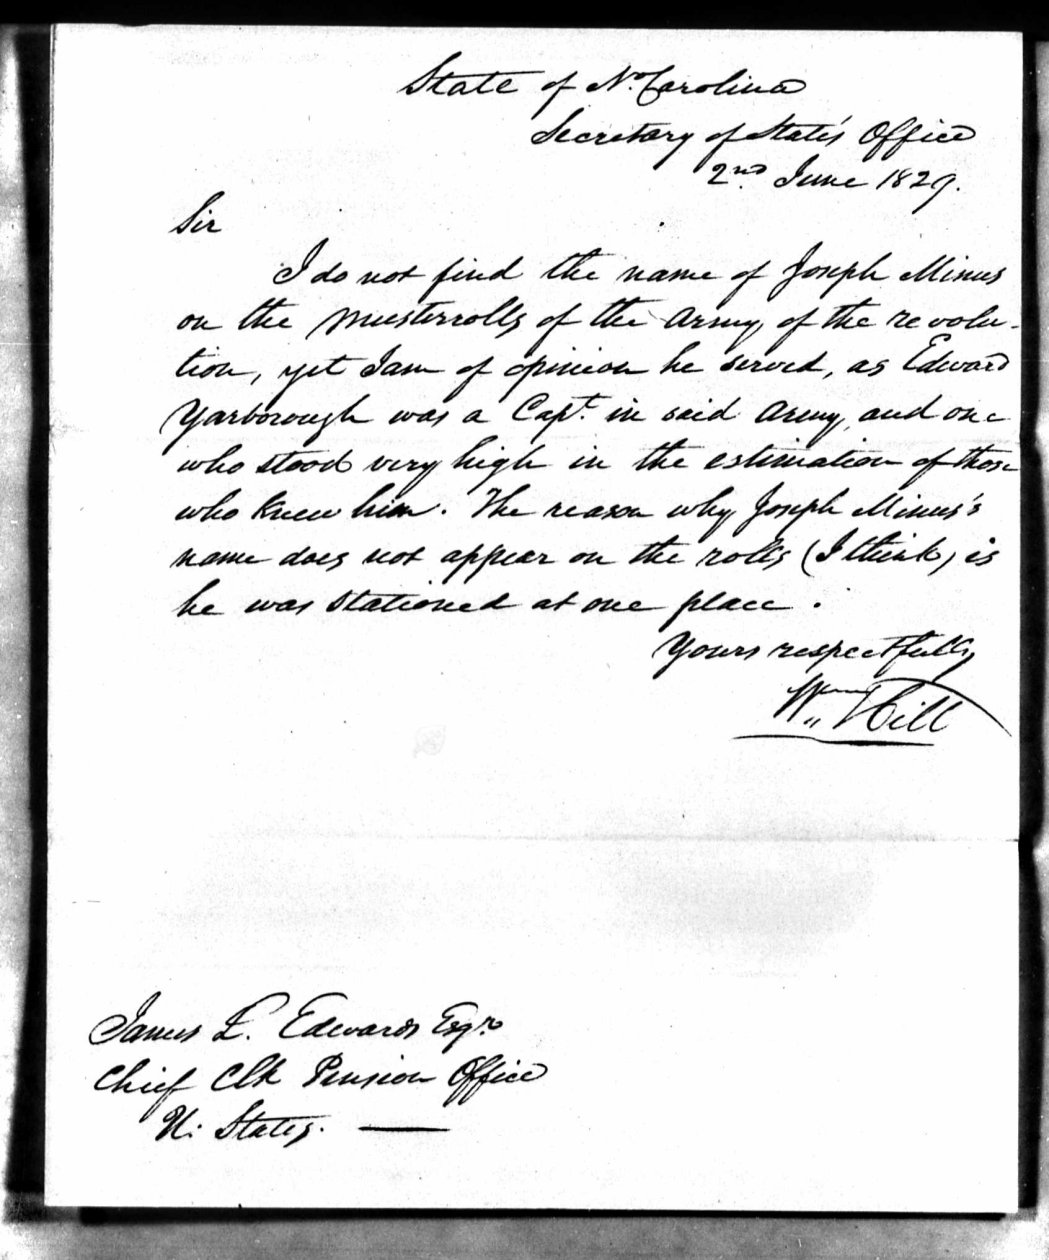 State of No. Carolina
Secretary of State's Office
2nd June 1829.
Sir
I do not find the name of Joseph Minus
on the musterrolls of the Army, of the revolu-
tion, yet I am of opinion he served, as Edward
Yarborough was a Capt. in said Army, and one
who stood very high in the estimation of those
who knew him. The reason why Joseph Minus's
name does not appear on the rolls (I think) is
he was stationed at one place.
Yours respectfully
Wm Hill
James L. Edwards Esqr.
Chief Clk Pension Office
U. States.